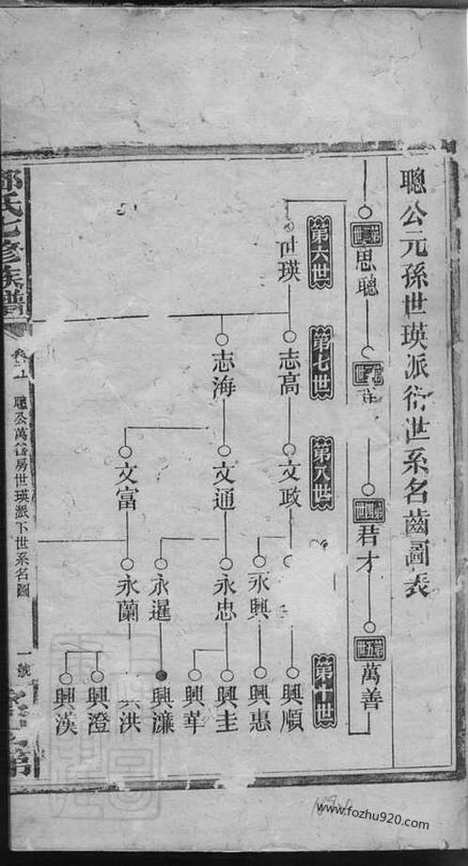 聰公元孫世瑛派衍世系名齒圖表
思聰
君才
萬善
第六世
第七世
第八世
第十世
世瑛
志高
志海
文政
文通
文富
永興
永忠
永暹
永蘭
興順
興惠
興圭
興華
興濂
洪
興澄
興漢
氏七修族譜
聰公萬善房世瑛派下世系名圖
一號
www.fozhu920.com